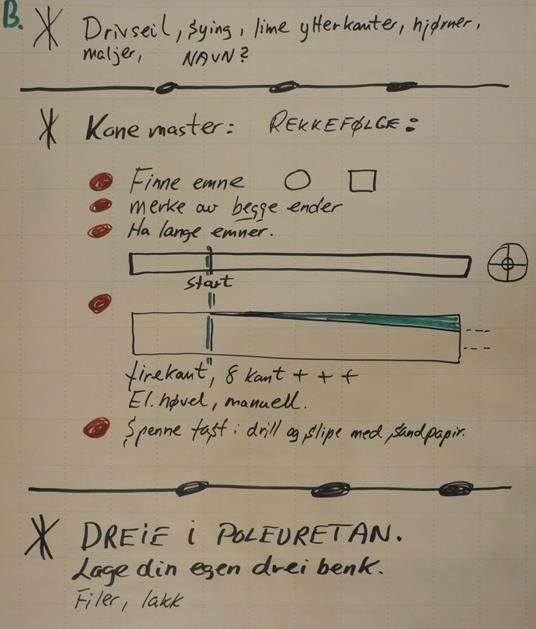 B.
Drivseil, sying, lime ytterkanter, hjørner,
maljer, NAVN?
Kone master: REKKEFØLGE:
Finne emne
merke av begge ender
Ha lange emner.
start
firekant, 8 kant + + +
El. høvel, manuell.
Spenne fast i drill og slipe med sandpapir.
DREIE i POLEURETAN.
Lage din egen drei benk.
Filer, lakk